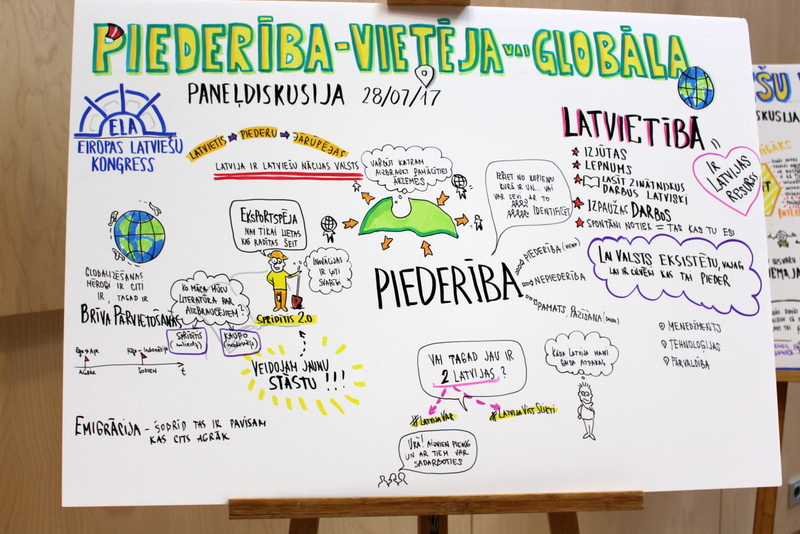 PIEDERĪBA - VIETĒJA vai GLOBĀLA
PANEĻDISKUSIJA 28/07/17
ELA
EIROPAS LATVIEŠU
KONGRESS
LATVIETIS → PIEDERU → JĀRŪPĒJAS
LATVIJA IR LATVIEŠU NĀCIJAS VALSTS
VARBŪT KATRAM
AIZBRAUKT PAMĀCĪTIES
ĀRZEMĒS
EKSPORTSPĒJA
NAV TIKAI LIETAS
KAS RADĪTAS ŠEIT
INOVĀCIJAS
IR ĻOTI
SVARĪGI
SPRĪDĪTIS 2.0
VEIDOJAM JAUNU
STĀSTU !!!
GLOBALIZĒŠANĀS
MĒROGI IR CITI
IR, TAGAD IR
BRĪVA PĀRVIETOŠANĀS
KO MĀCA MŪSU
LITERATŪRA PAR
AIZBRAUCĒJIEM?
SPRĪDĪTIS
KAUPO
AGRĀK
ŠODIEN
t
EMIGRĀCIJA - ŠOBRĪD TAS IR PAVISAM
KAS CITS AGRĀK
IEBIET NO KOPIENU
KURĀ IR UN... VAI
VAR IET AR TO
IDENTIFICĒT
PIEDERĪBA
PIEDERĪBA
NEPIEDERĪBA
PAMATS, PAZĪŠANA
LATVIETĪBA
IZJŪTAS
LEPNUMS
LASĪT ZINĀTNISKUS
DARBUS LATVISKI
IZPAUŽAS DARBOS
SPONTĀNI NOTIEK = TAS KAS TU ESI
IR
LATVIJAS
RESURSS
LAI VALSTS EKSISTĒTU, VAJAG,
LAI IR CILVĒKI KAS TAI PIEDER
MENEDŽMENTS
TEHNOLOĢIJAS
PĀRVALDĪBA
VAI TAGAD JAU IR
2 LATVIJAS?
#LATVIJAVAR
#LATVIJAVISSSLIKTI
KĀDA LATVIJA MANI
GAIDA ATPAKAĻ
URĀ! AIZVIEN PIENĀK
UN AR TIEM VAR
SADARBOTIES